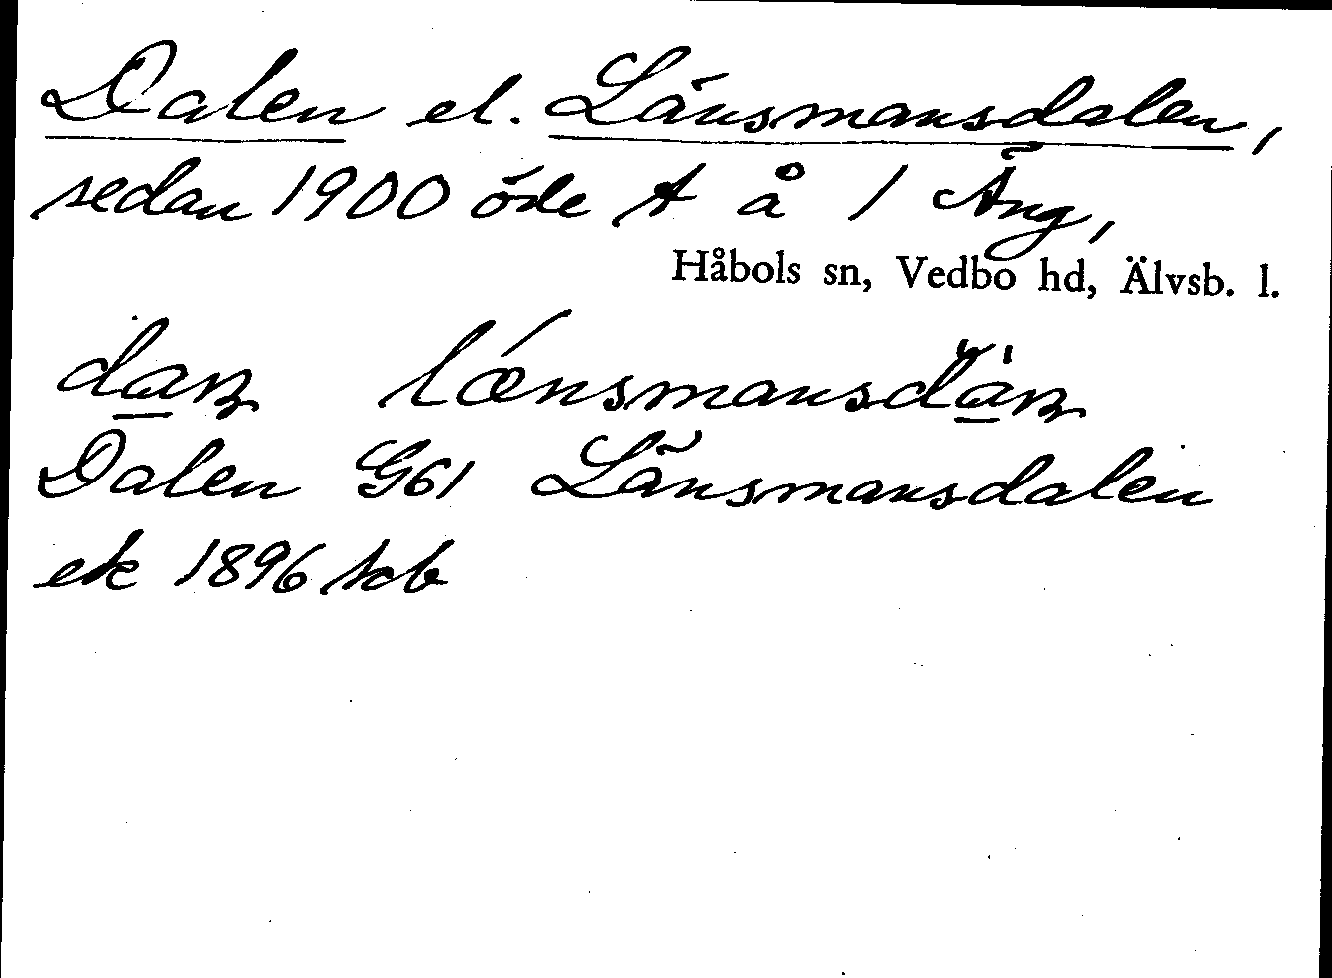 Dalen el. Länsmansdalen,
sedan 1900 öde t å 1 Äng,
Håbols sn, Vedbo hd, Älvsb. l.
Dalen G61 Länsmansdalen
ek 1896 hob